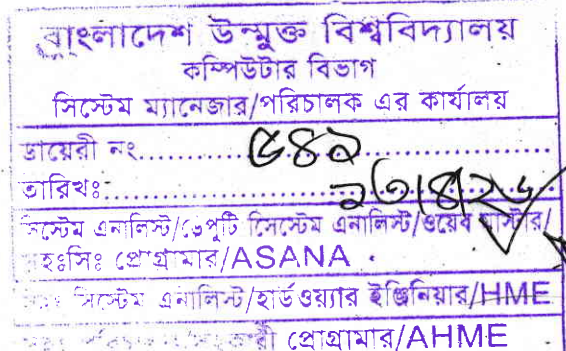 বাংলাদেশ উন্মুক্ত বিশ্ববিদ্যালয়
কম্পিউটার বিভাগ
সিস্টেম ম্যানেজার/পরিচালক এর কার্যালয়
ডায়েরী নং....................
তারিখঃ....................
সিস্টেম এনালিস্ট/ডেপুটি সিস্টেম এনালিস্ট/ওয়েব মাস্টার/
সহঃসিঃ প্রোগ্রামার/ASANA
সিস্টেম এনালিস্ট/হার্ডওয়্যার ইঞ্জিনিয়ার/HME
প্রোগ্রামার/AHME